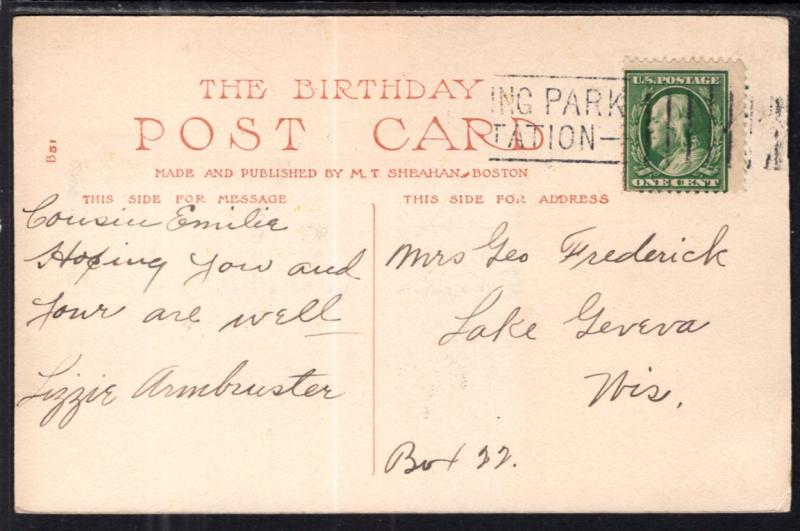 THE BIRTHDAY
POST CARD
MADE AND PUBLISHED BY M. T. SHEAHAN, BOSTON
B51
ING PARK
TATION—
U.S. POSTAGE
ONE CENT
THIS SIDE FOR MESSAGE
Cousin Emilie
Hoping you and
your are well
Lizzie Armbruster
THIS SIDE FOR ADDRESS
Mrs Geo Frederick
Lake Geveva
Wis.
Box 22.